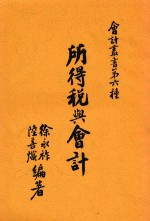 會計叢書第六種
所得稅與會計
徐永祚
陸善熾
編著